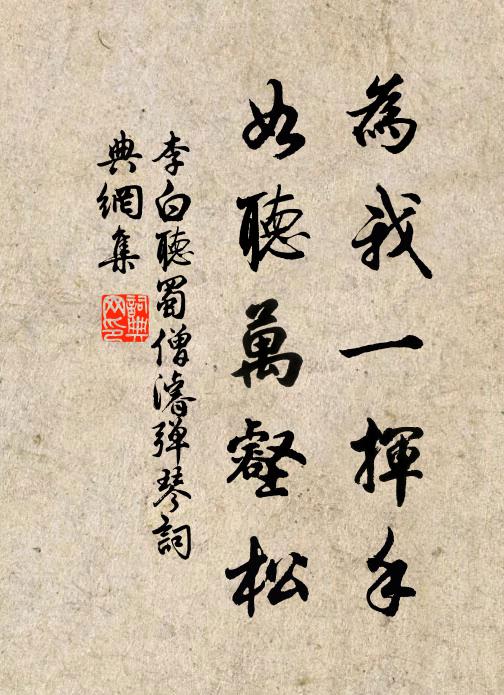 為我一揮手
如聽萬壑松
李白聽蜀僧濬彈琴詞
典網集
詞典网印